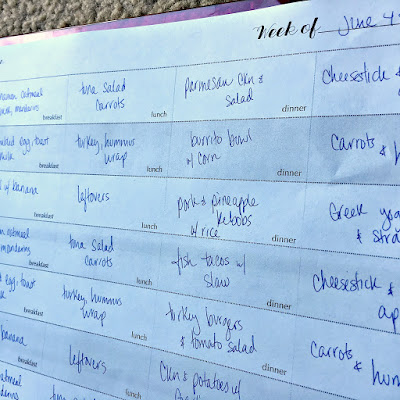 Week of June 4
oatmeal
mandarins
breakfast
tuna salad
carrots
lunch
parmesan ckn &
salad
dinner
cheesestick &
egg, toast
milk
breakfast
turkey, hummus
wrap
lunch
burrito bowl
w/ corn
dinner
carrots &
banana
breakfast
leftovers
lunch
pork & pineapple
kebobs
w/ rice
dinner
Greek
&
oatmeal
mandarins
breakfast
tuna salad
carrots
lunch
fish tacos w/
slaw
dinner
cheesestick &
egg, toast
breakfast
turkey, hummus
wrap
lunch
turkey burgers
& tomato salad
dinner
carrots
& hum
banana
breakfast
leftovers
lunch
ckn & potatoes w/
oatmeal